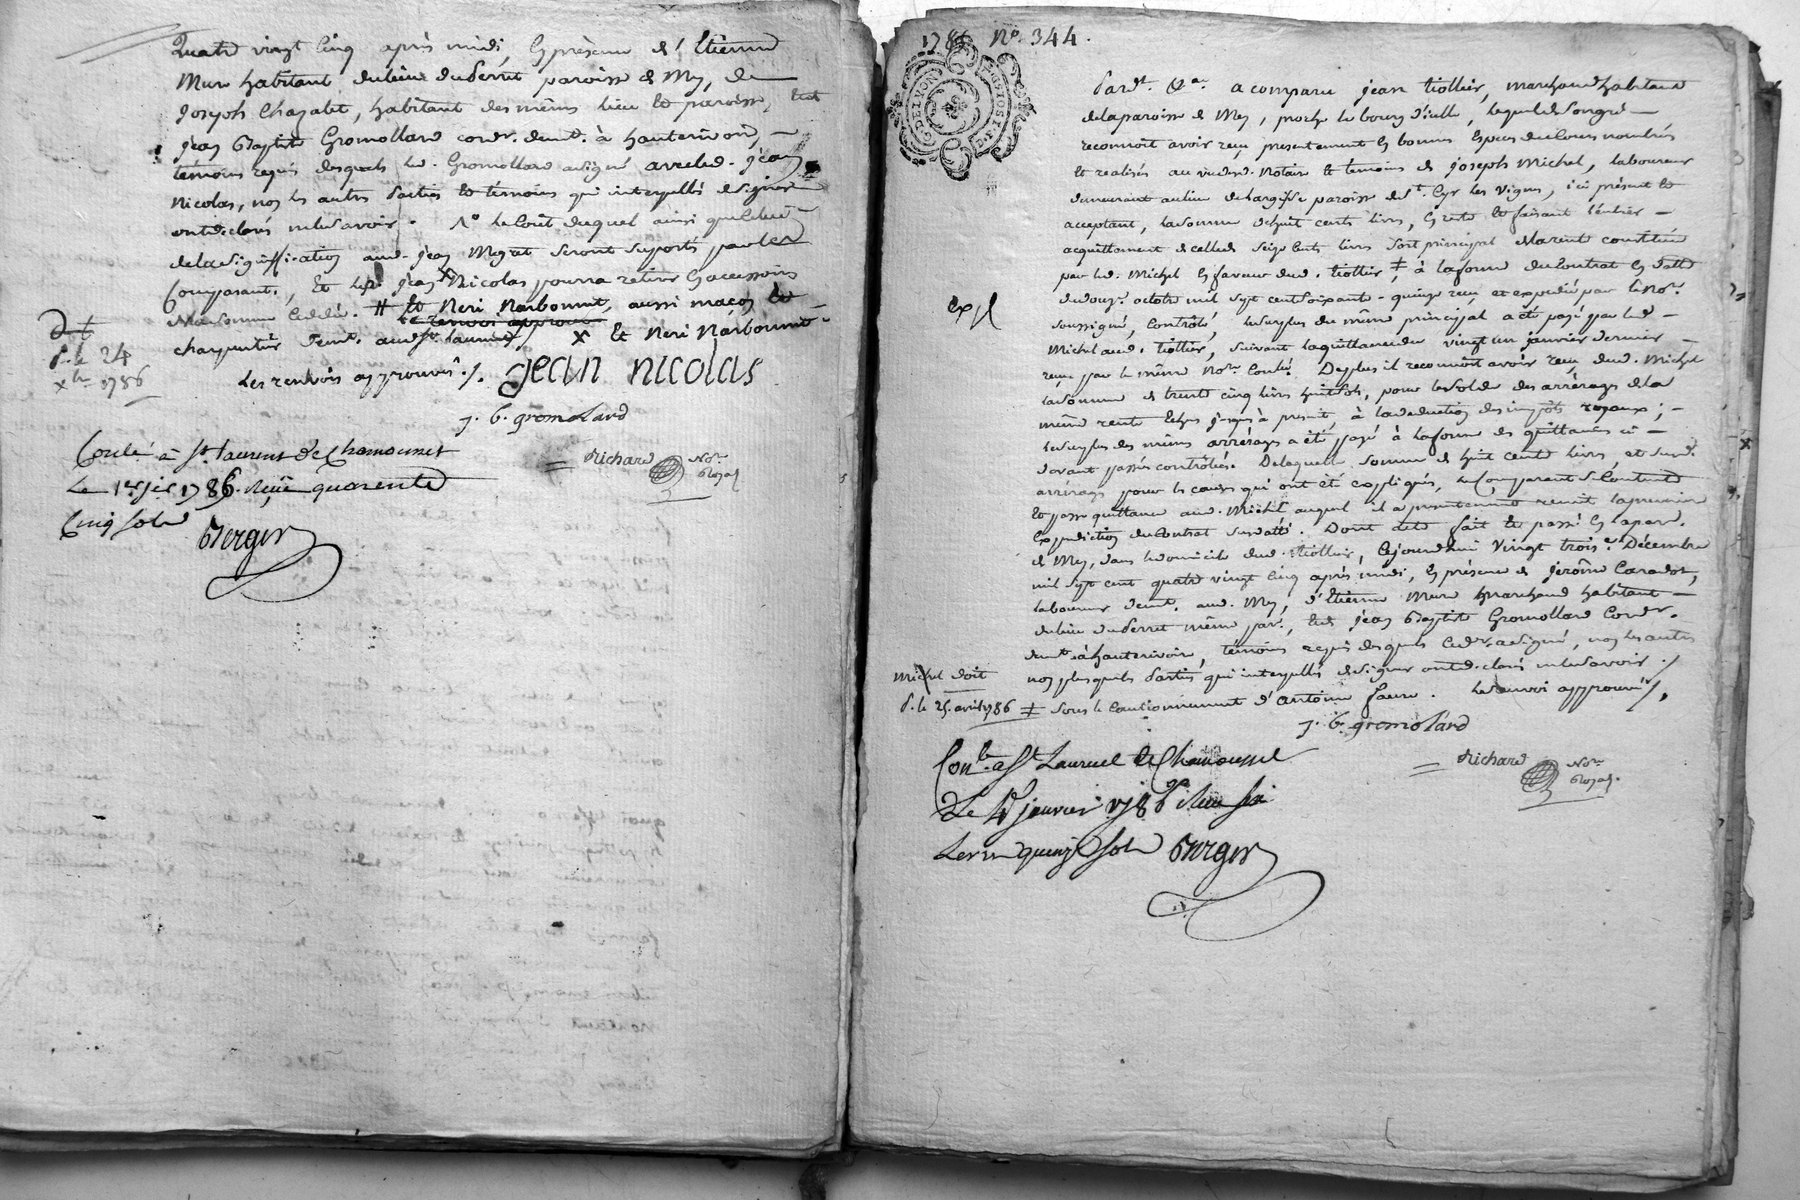 Quatre vingt cinq après midi, En présence d'Etienne
Mure habitant du lieu du Perret paroisse de Mey, de
Joseph Chazalet, habitant des mêmes lieu et paroisse, et de
jean Baptiste Gromollard cordr. demt. à hauterivoire, —
témoins requis desquels led. Gromollard a signé avec led. jean
Nicolas, non les autres parties et témoins qui interpellés de signer
ont déclaré ne le savoir. le Coût duquel ainsi que celui
de la signiffication aud. jean seront suportés par led.
Comparant, Et led. jean X Nicolas pourra retirer Es accessoires
la somme Cédée. # et Neri Narbonnet, aussi maçon et
charpentier demt. aud. st. laurent X et Neri Narbonnet.
Les renvois approuvés ./.
jean nicolas
j. b. gromolard
Richard Nore. Royal
dt
p. le 24
xbre 1786
Conlé à St. laurent de Chamousset
Le 1er jer 1786. Reçu quarente
Cinq sols
Berger
1785 No. 344.
G. DE LYON
Pardt. &a. a comparu jean tiollier, marchand habitant
de la paroisse de Mey, proche le bourg d'ielle, lequel de son gré —
reconnoit avoir reçu presentement En bonnes Especes de Cours nombrés
et realisés au vu dud. Notaire et temoins de joseph Michel, laboureur
demeurant au lieu de paroisse de St. Cyr les Vignes, ici présent et
acceptant, la somme de huit cents livres, En reste et faisant l'entier —
acquittement de celle de seize Cents livres sort principal de la rente constituée
par led. Michel En faveur dud. tiollier ‡ à la forme du Contrat En datte
du douze octobre mil sept cent soixante-quinze reçu et expédié par le Nore.
soussigné, Contrôlé, le surplus du même principal a été payé par led. —
Michel aud. tiollier, suivant la quittance du vingt un janvier dernier —
reçue par le même Nore. Conlée. De plus il reconnoit avoir reçu dud. Michel
la somme de trente cinq livres huit sols, pour le solde des arrérages de la
même rente Echus jusqu'à présent, à la déduction des impôts royaux; —
le surplus des mêmes arrérages a été payé à la forme des quittances ci —
devant passées contrôlées. De laquelle somme de huit cents livres et desd.
arrérages pour les causes qui ont été expliqués, le Comparant se Contente
Et passe quittance aud. Michel auquel il a presentement remit la premiere
Expedition du Contrat susdatté. Dont acte fait et passé En la par.
de Mey, dans le domicile dud. tiollier, Cejourdhui Vingt trois Décembre
mil sept cent quatre vingt Cinq après midi, En présence de jerôme
laboureur demt. aud. Mey, d'Etienne Mure Marchand habitant —
du lieu du Perret même par., et de jean Baptiste Gromollard Cordr.
demt. à hauterivoire, témoins requis desquels Ced. a signé, non les autres
non plus que les parties qui interpellés de signer ont déclaré ne le savoir ./.
‡ sous le Cautionnement d'antoine faure. le renvoi approuvé ./.
exp.
michel doit
p. le 25. avril 1786
j. b. gromolard
Richard Nore. Royal.
Conlé à St Laurent de Chamousset
Le 4 janvier 1786 Reçu six
Livres quinze sols Berger